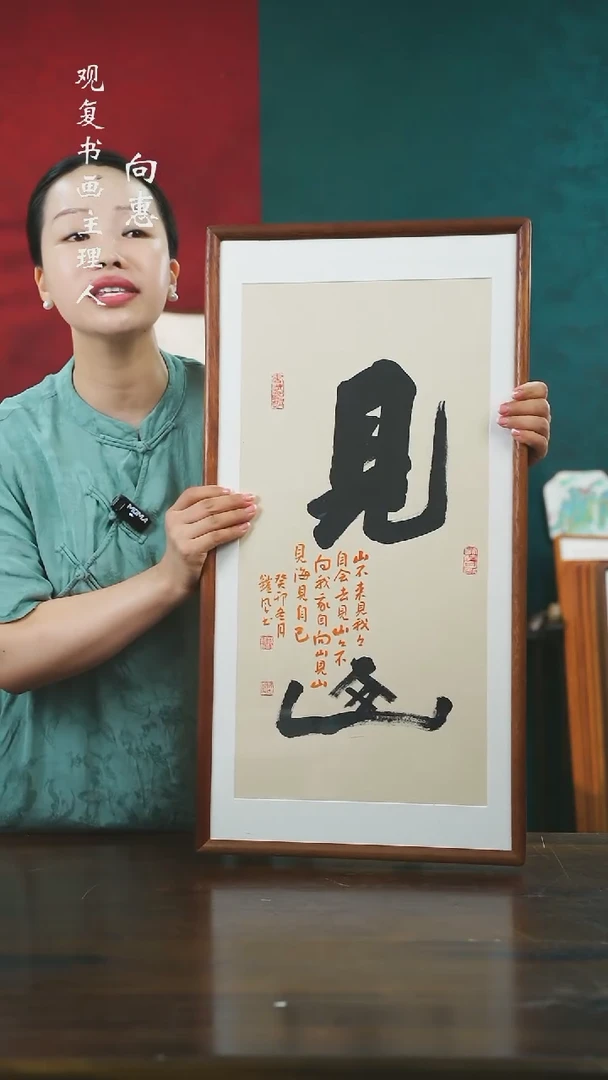 观复书画主理人
向惠
見
山
山不来見我々
自会去見山々不
向我我自向山見山
見海見自己
癸卯冬月
MOMA